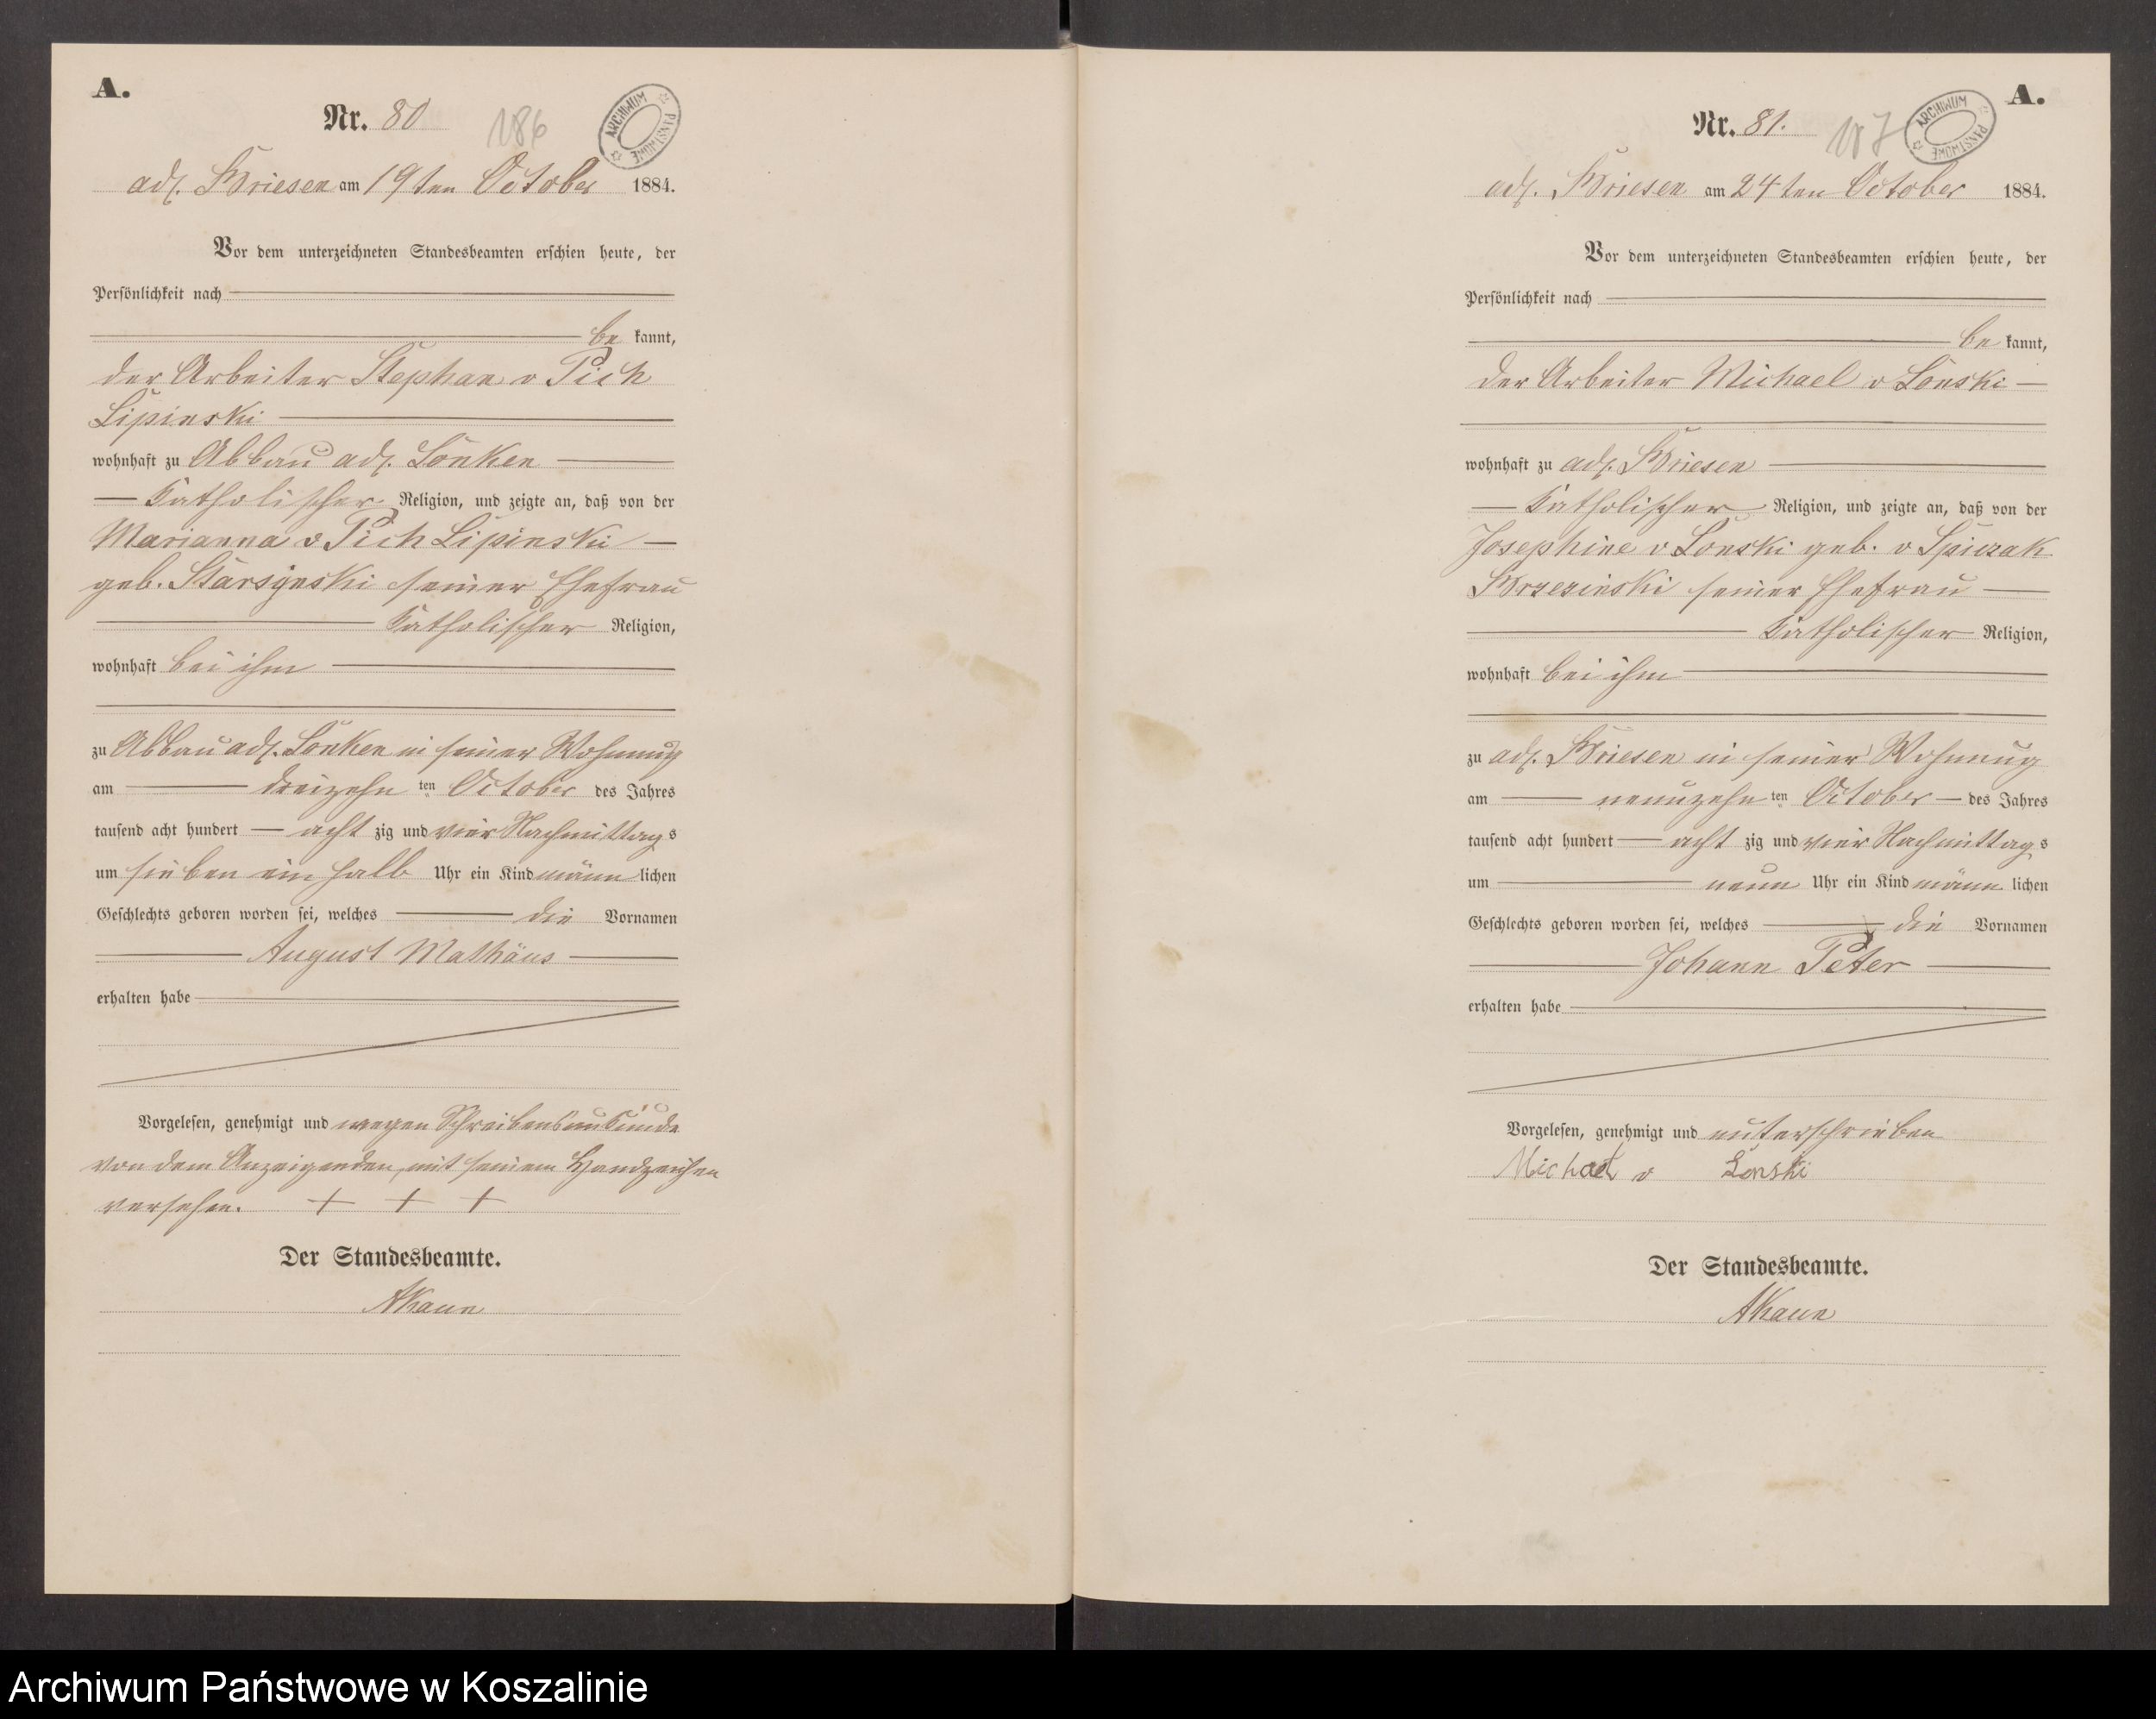 A.
Nr. 80
186
ARCHIWUM PAŃSTWOWE
adl. Briesen am 19ten October 1884.
Vor dem unterzeichneten Standesbeamten erschien heute, der
Persönlichkeit nach
be kannt,
der Arbeiter Stephan v Pich
Lipinski
wohnhaft zu Abbau adl. Lonken
Katholischer Religion, und zeigte an, daß von der
Marianna v Pich Lipinski
geb. Starsynski seiner Ehefrau
Katholischer Religion,
wohnhaft bei ihm
zu Abbau adl. Lonken in seiner Wohnung
am dreizehn ten October des Jahres
tausend acht hundert acht zig und vier Nachmittags
um sieben ein halb Uhr ein Kind männlichen
Geschlechts geboren worden sei, welches die Vornamen
August Mathäus
erhalten habe
Vorgelesen, genehmigt und wegen Schreibensunkunde
von dem Anzeigenden, mit seinem Handzeichen
versehen. + + +
Der Standesbeamte.
AKaun
A.
Nr. 81.
187
ARCHIWUM PAŃSTWOWE
adl. Briesen am 24ten October 1884.
Vor dem unterzeichneten Standesbeamten erschien heute, der
Persönlichkeit nach
be kannt,
der Arbeiter Michael v Lonski
wohnhaft zu adl. Briesen
Katholischer Religion, und zeigte an, daß von der
Josephine v Lonski geb. v Spiczak
Brzezinski seiner Ehefrau
Katholischer Religion,
wohnhaft bei ihm
zu adl. Briesen in seiner Wohnung
am neunzehn ten October des Jahres
tausend acht hundert acht zig und vier Nachmittags
um neun Uhr ein Kind männlichen
Geschlechts geboren worden sei, welches die Vornamen
Johann Peter
erhalten habe
Vorgelesen, genehmigt und unterschrieben
Michael v Lonski
Der Standesbeamte.
AKaun
Archiwum Państwowe w Koszalinie